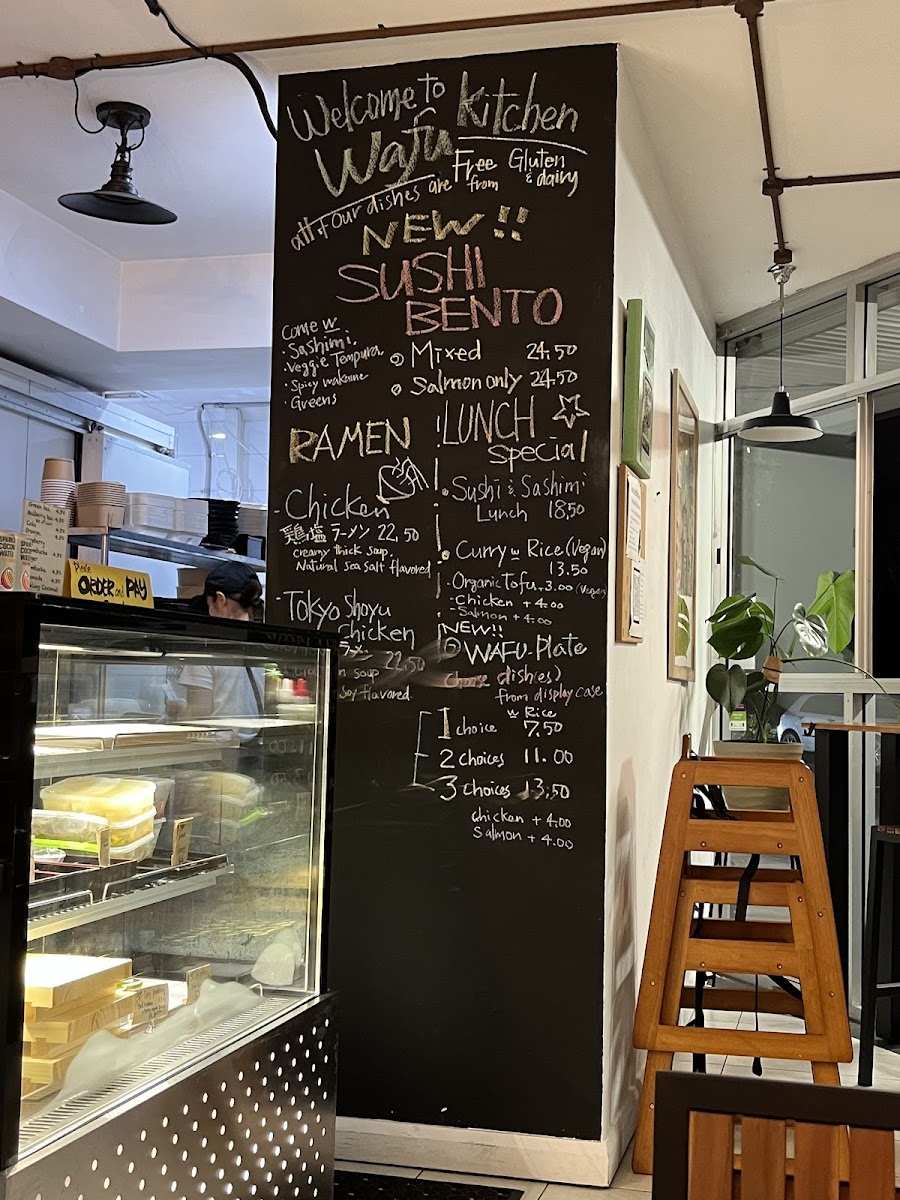 Welcome to
Wafu Kitchen
all of our dishes are Free from Gluten & dairy
NEW !!
SUSHI
BENTO
Come w
· Sashimi,
· Veggie Tempura,
· Spicy wakame
· Greens
Mixed 24.50
Salmon only 24.50
RAMEN
- Chicken
鶏塩ラーメン 22.50
creamy thick soup,
Natural sea salt flavored
- Tokyo Shoyu
Chicken
22.50
soup
Soy flavored
LUNCH
special
Sushi & Sashimi
Lunch 18.50
Curry w Rice (Vegan)
13.50
- Organic Tofu +3.00 (Vegan)
- Chicken + 4.00
- Salmon + 4.00
NEW!!
WAFU-Plate
dish(es)
from display case
w Rice
1 choice 7.50
2 choices 11.00
3 choices 13.50
chicken + 4.00
Salmon + 4.00
ORDER and PAY